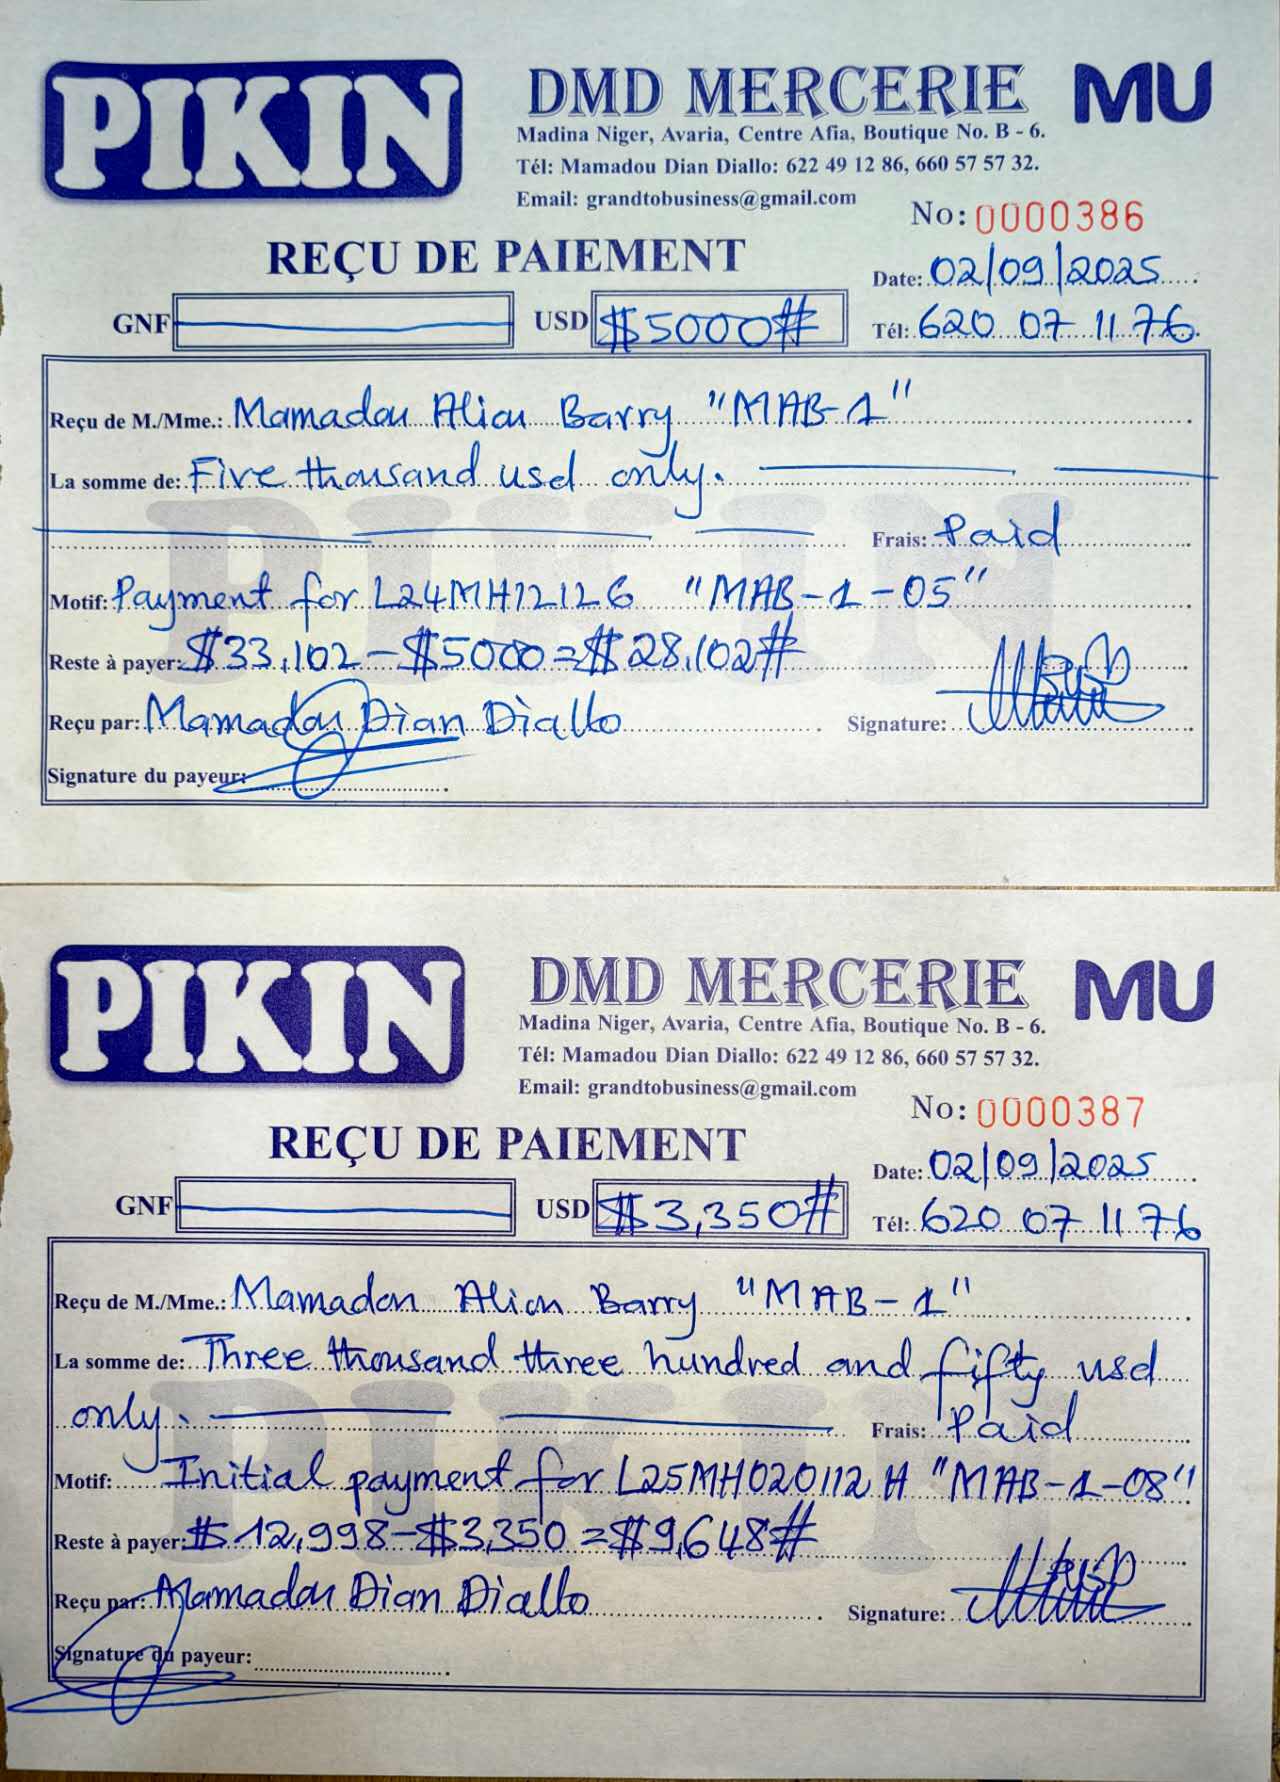 PIKIN
DMD MERCERIE MU
Madina Niger, Avaria, Centre Afia, Boutique No. B - 6.
Tél: Mamadou Dian Diallo: 622 49 12 86, 660 57 57 32.
Email: grandtobusiness@gmail.com
No: 0000386
REÇU DE PAIEMENT
Date: 02/09/2025
GNF USD $5000#
Tél: 620 07 11 76
Reçu de M./Mme.: Mamadou Aliou Barry "MAB-1"
La somme de: Five thousand usd only.
Frais: Paid
Motif: Payment for L24MH12126 "MAB-1-05"
Reste à payer: $33,102-$5000=$28,102#
Reçu par: Mamadou Dian Diallo Signature:
Signature du payeur:
PIKIN
PIKIN
DMD MERCERIE MU
Madina Niger, Avaria, Centre Afia, Boutique No. B - 6.
Tél: Mamadou Dian Diallo: 622 49 12 86, 660 57 57 32.
Email: grandtobusiness@gmail.com
No: 0000387
REÇU DE PAIEMENT
Date: 02/09/2025
GNF USD $3,350#
Tél: 620 07 11 76
Reçu de M./Mme.: Mamadou Aliou Barry "MAB-1"
La somme de: Three thousand three hundred and fifty usd
only. Frais: Paid
Motif: Initial payment for L25MH020112H "MAB-1-08"
Reste à payer: $12,998-$3,350=$9,648#
Reçu par: Mamadou Dian Diallo Signature:
Signature du payeur:
PIKIN